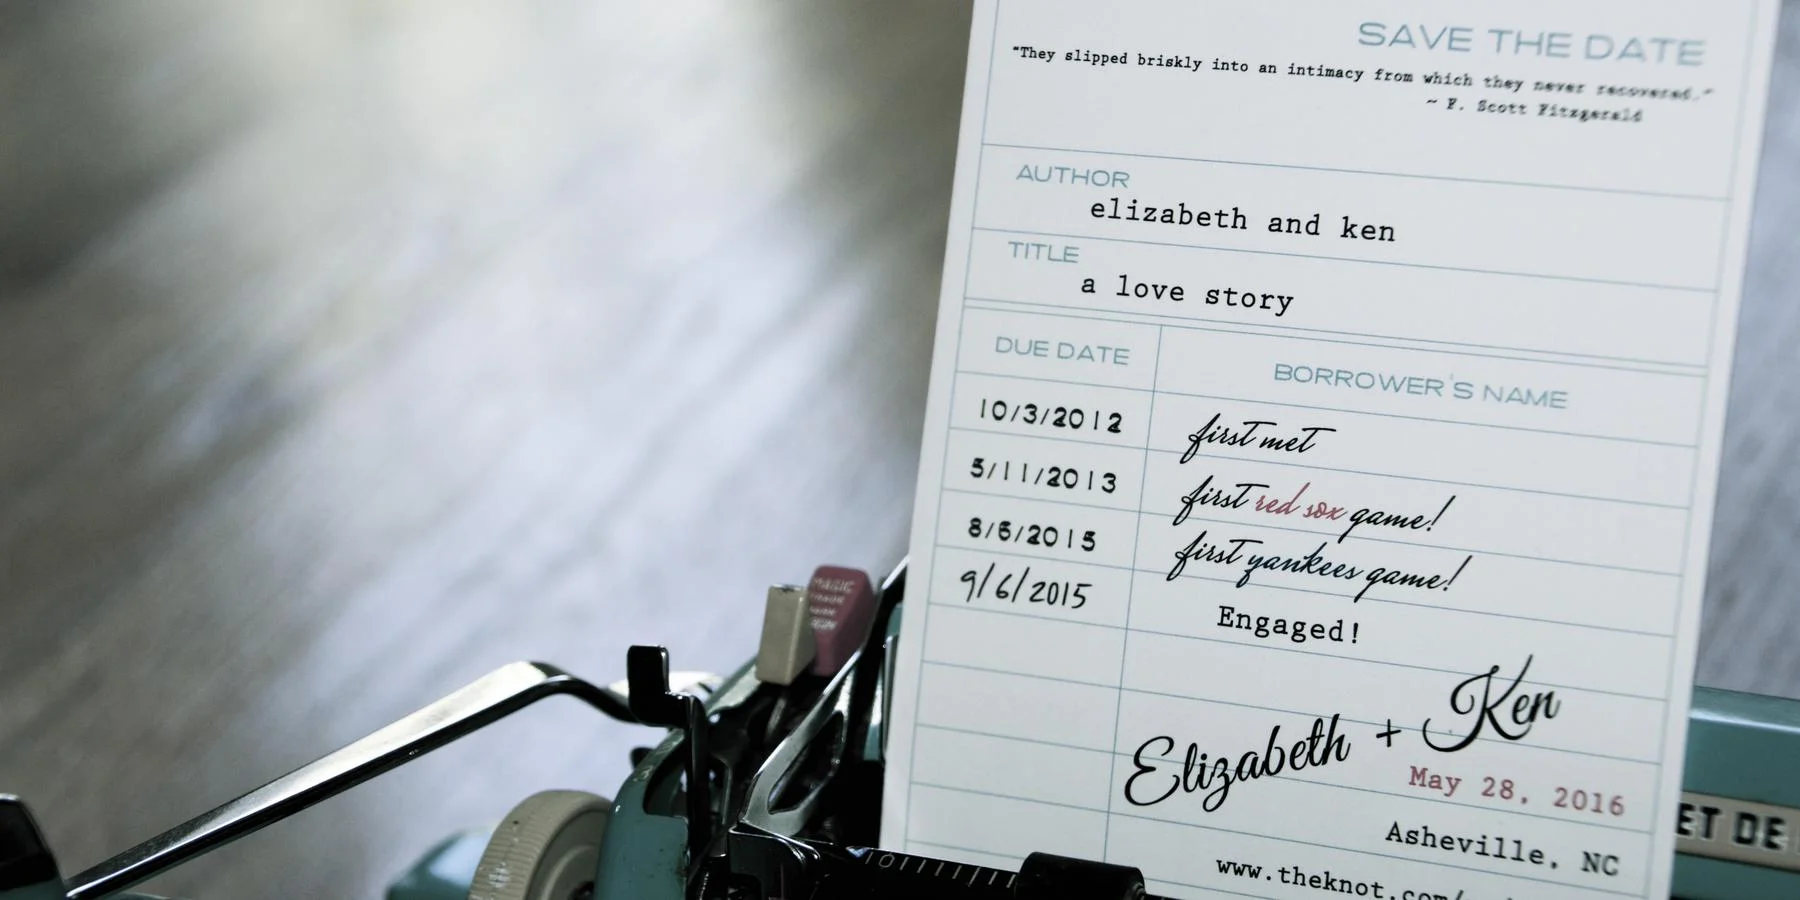 SAVE THE DATE
"They slipped briskly into an intimacy from which they never recovered."
~ F. Scott Fitzgerald
AUTHOR
elizabeth and ken
TITLE
a love story
DUE DATE BORROWER'S NAME
10/3/2012 first met
5/11/2013 first red sox game!
8/6/2015 first yankees game!
9/6/2015 Engaged!
Elizabeth + Ken
May 28, 2016
Asheville, NC
www.theknot.com/
MAGIC
ET DE